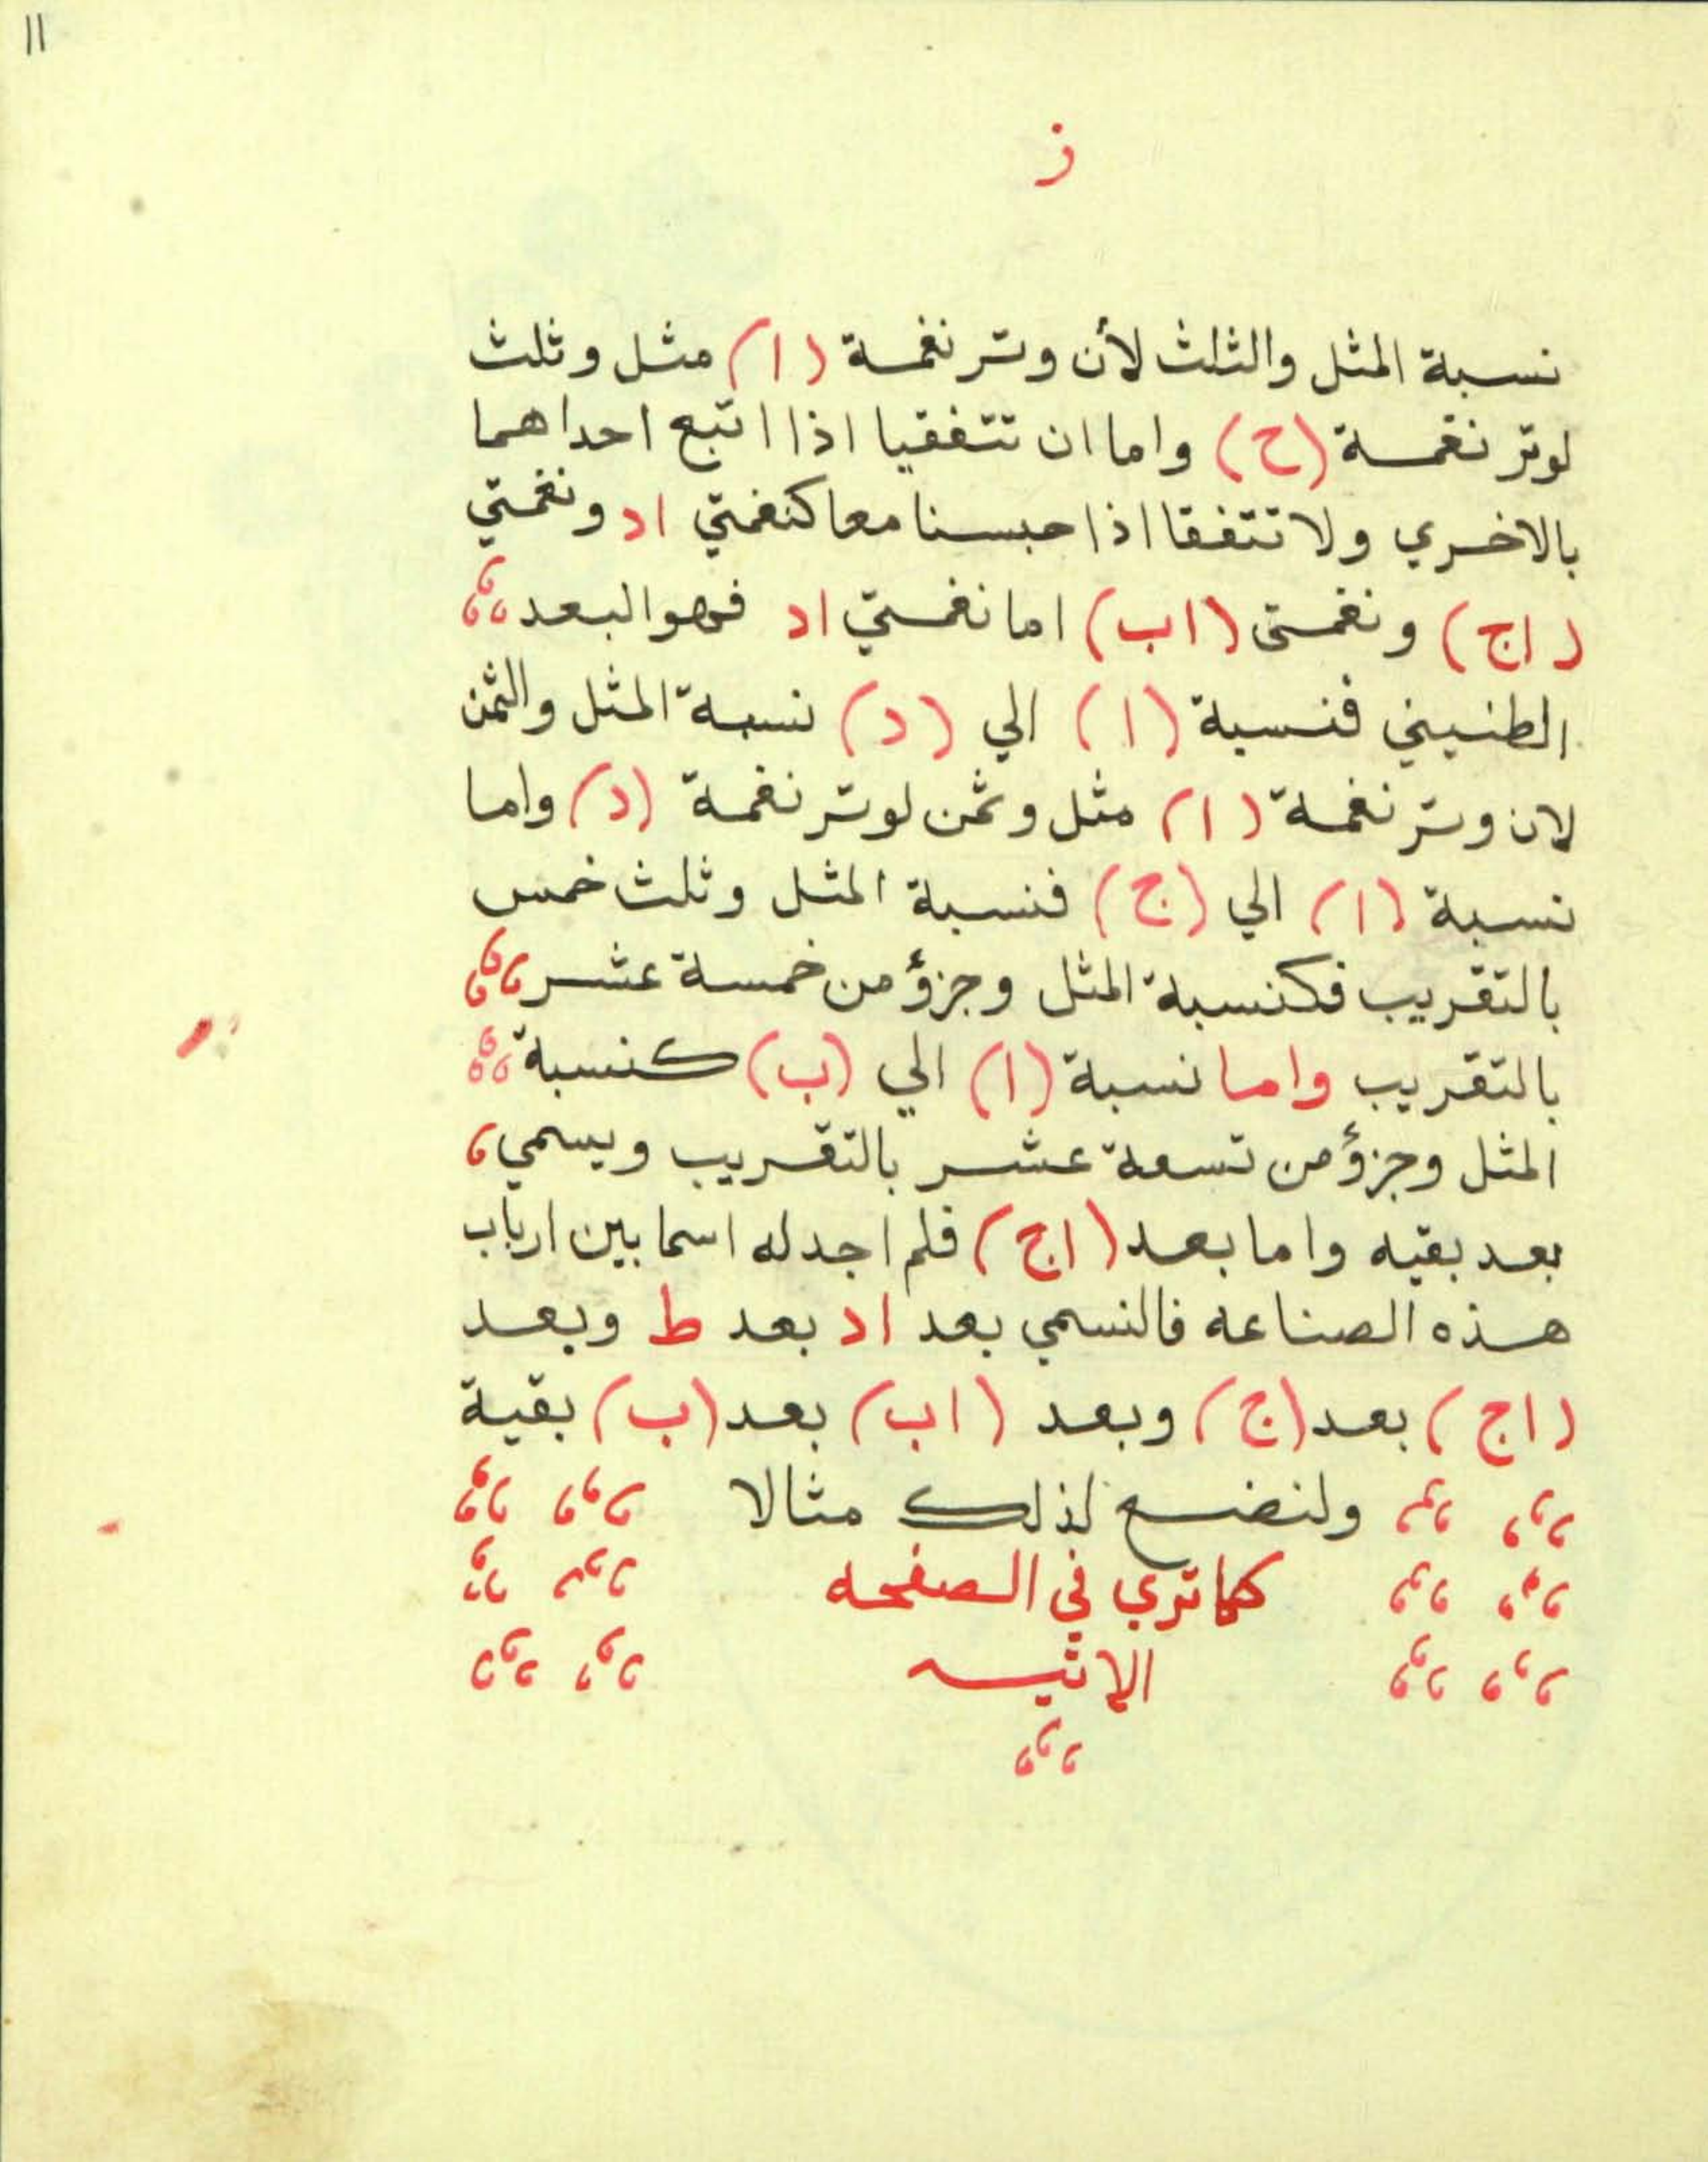 11
ز
نسبة المثل والثلث لأن وتر نغمة (ا) مثل وثلث
لوتر نغمة (ح) واما ان تتفقيا اذا اتبع احداهما
بالاخري ولا تتفقا اذا حبسنا معا كنغمتي اد ونغمتي
(اج) ونغمتى (اب) اما نغمتي اد فهو البعد
الطنيني فنسبة (ا) الي (د) نسبة المثل والثمن
لان وتر نغمة (ا) مثل وثمن لوتر نغمة (د) واما
نسبة (ا) الي (ج) فنسبة المثل وثلث خمس
بالتقريب فكنسبة المثل وجزؤ من خمسة عشر
بالتقريب واما نسبة (ا) الي (ب) كنسبة
المثل وجزؤ من تسعة عشر بالتقريب ويسمي
بعد بقيه واما بعد (اج) فلم اجد له اسما بين ارباب
هذه الصناعه فالنسمي بعد اد بعد ط وبعد
(اج) بعد (ج) وبعد (اب) بعد (ب) بقية
ولنضع لذلك مثالا
كما تري في الصفحه
الاتيه